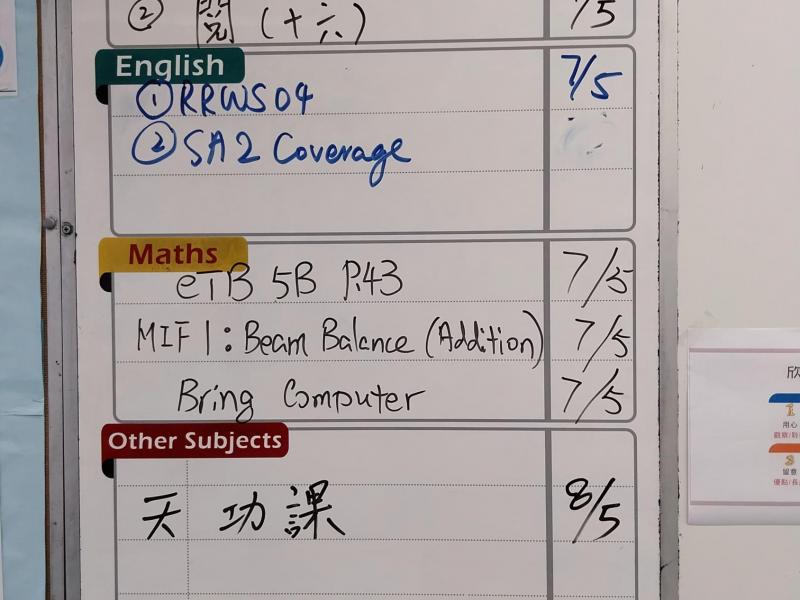 ② 閱 (十六) 7/5
English
① RRWS04 7/5
② SA2 Coverage
Maths
eTB 5B P.43 7/5
MIF 1: Beam Balance (Addition) 7/5
Bring Computer 7/5
Other Subjects
天 功課 8/5
欣
1
用心
3
留意